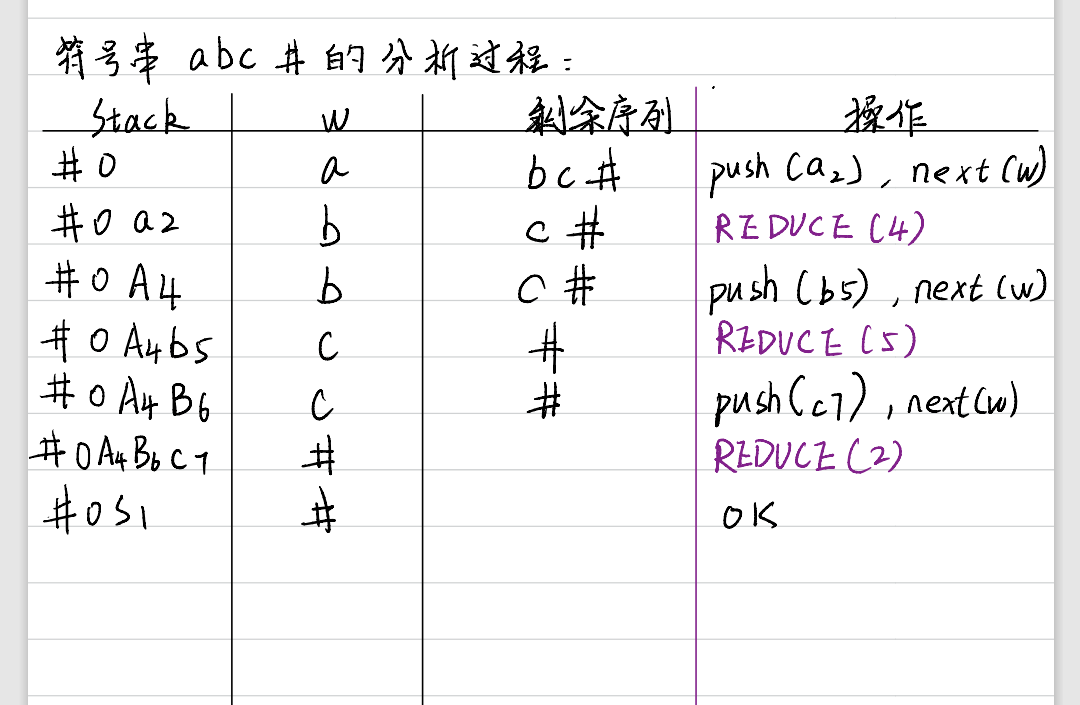 符号串 abc # 的分析过程:
Stack w 剩余序列 操作
#0 a bc# push(a2), next(w)
#0 a2 b c# REDUCE(4)
#0 A4 b c# push(b5), next(w)
#0 A4b5 c # REDUCE(5)
#0 A4B6 c # push(c7), next(w)
#0A4B6c7 # REDUCE(2)
#0S1 # OK